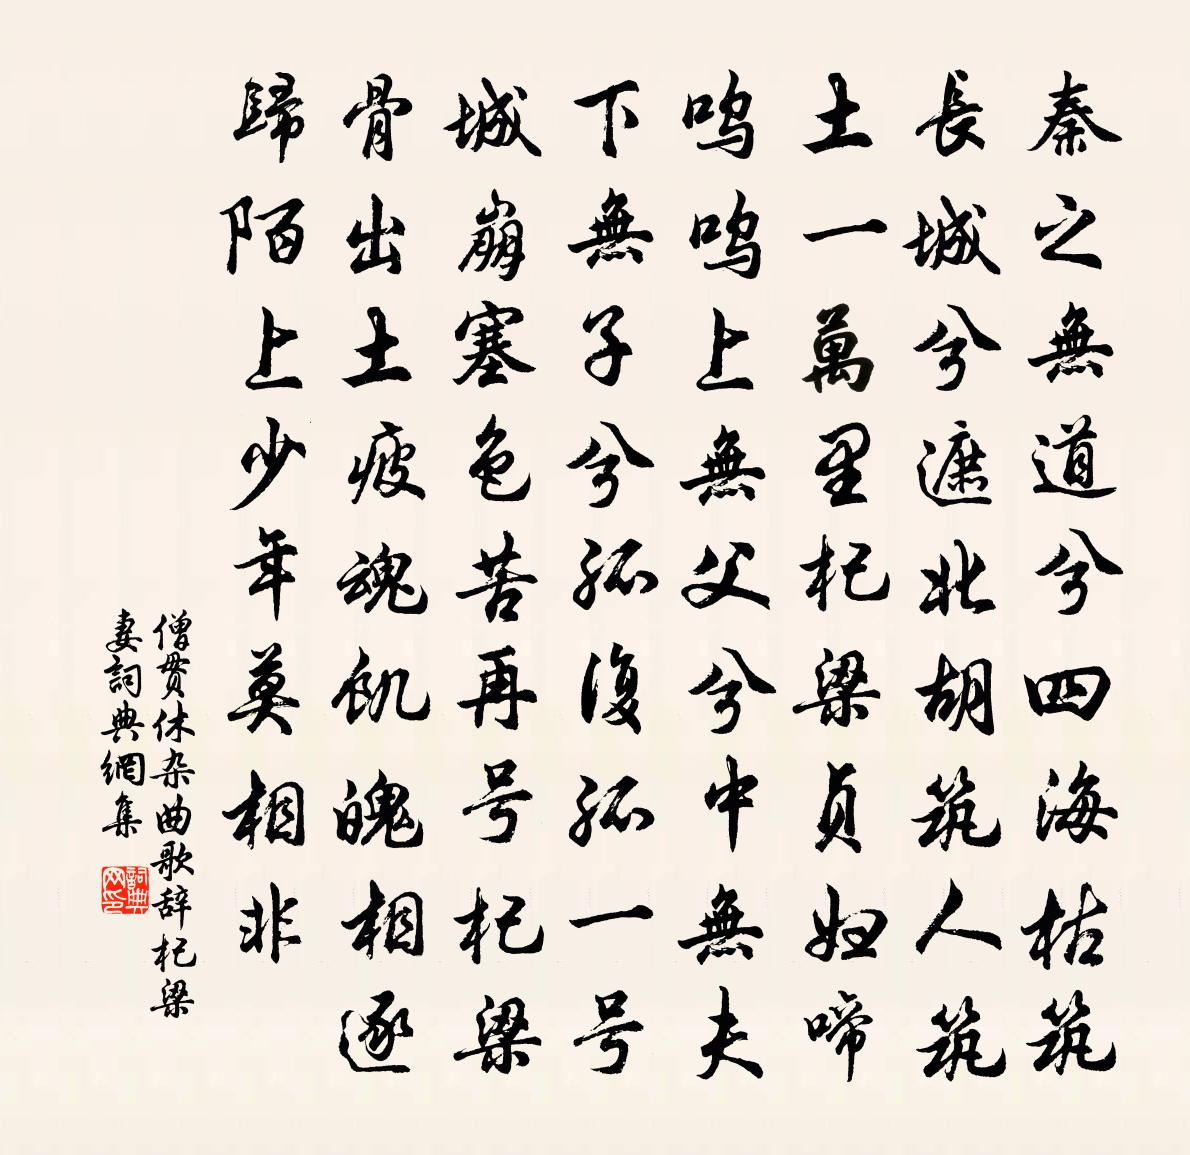 秦之無道兮四海枯筑
長城兮遮北胡筑人筑
土一萬里杞梁貞婦啼
嗚嗚上無父兮中無夫
下無子兮孤復孤一号
城崩塞色苦再号杞梁
骨出土疲魂飢魄相逐
歸陌上少年莫相非
僧贯休杂曲歌辞杞梁
妻詞典網集
詞典
网印